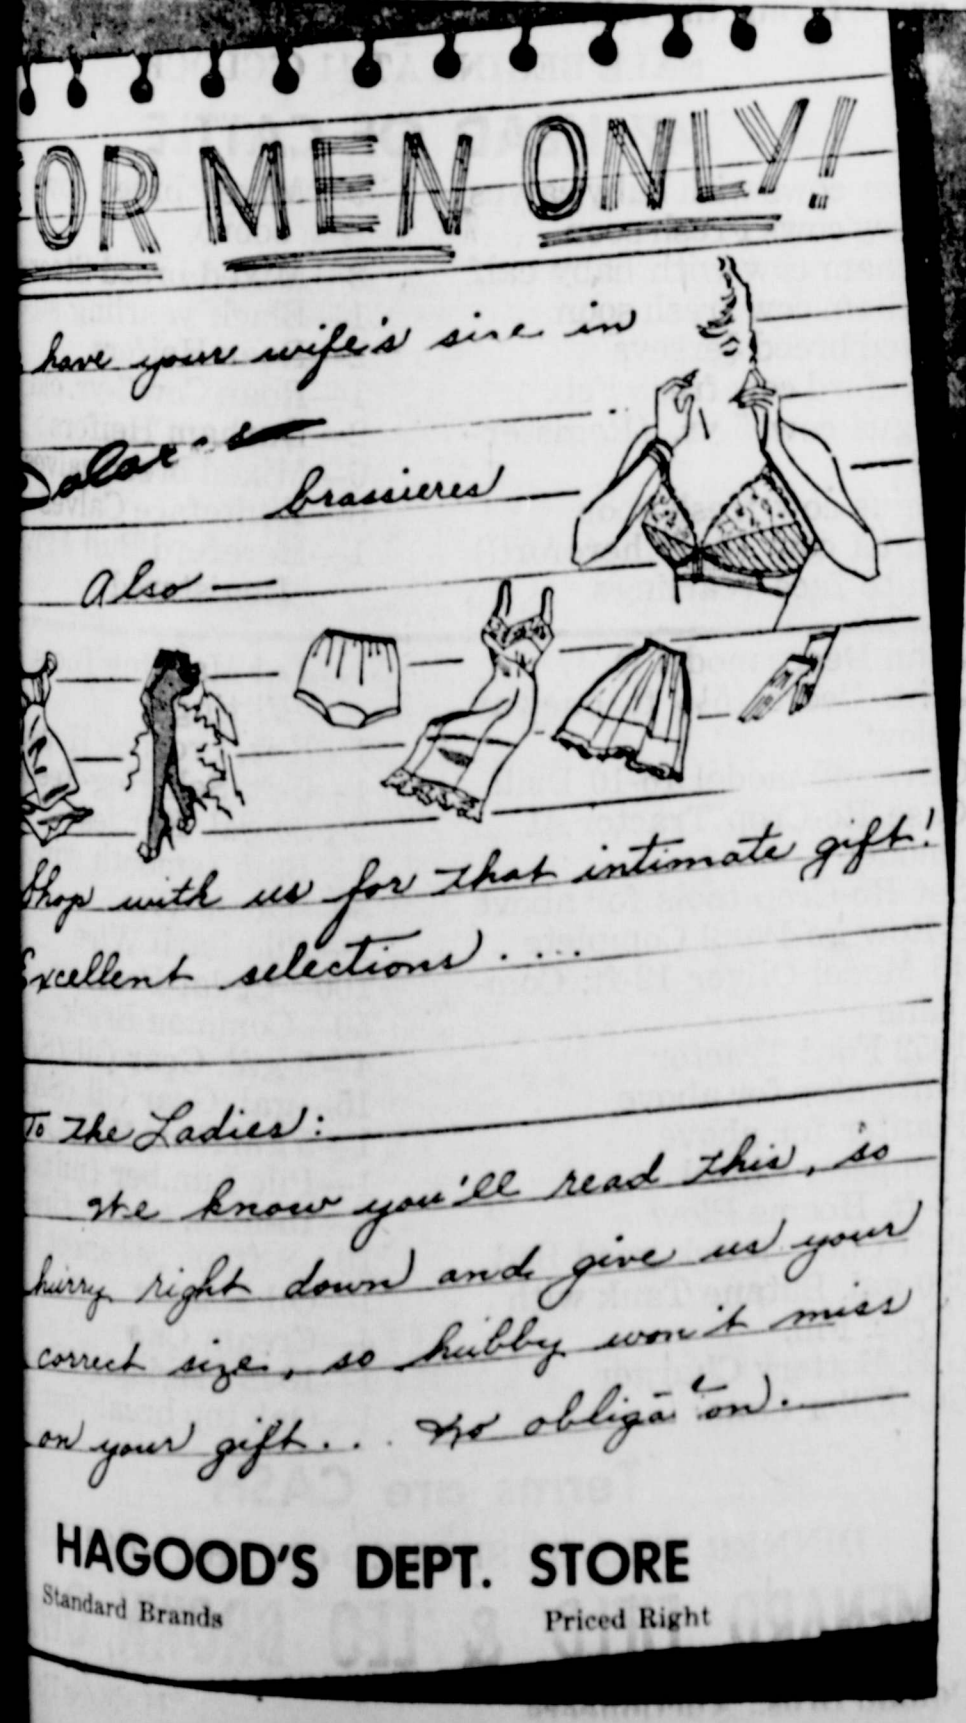 OR MEN ONLY!
have your wife's size in
brassieres
Also —
Shop with us for that intimate gift!
Excellent selections . . . .
To the Ladies:
We know you'll read this, so
hurry right down and give us your
correct size, so hubby won't miss
on your gift . . . No obligation.
HAGOOD'S DEPT. STORE
Standard Brands Priced Right